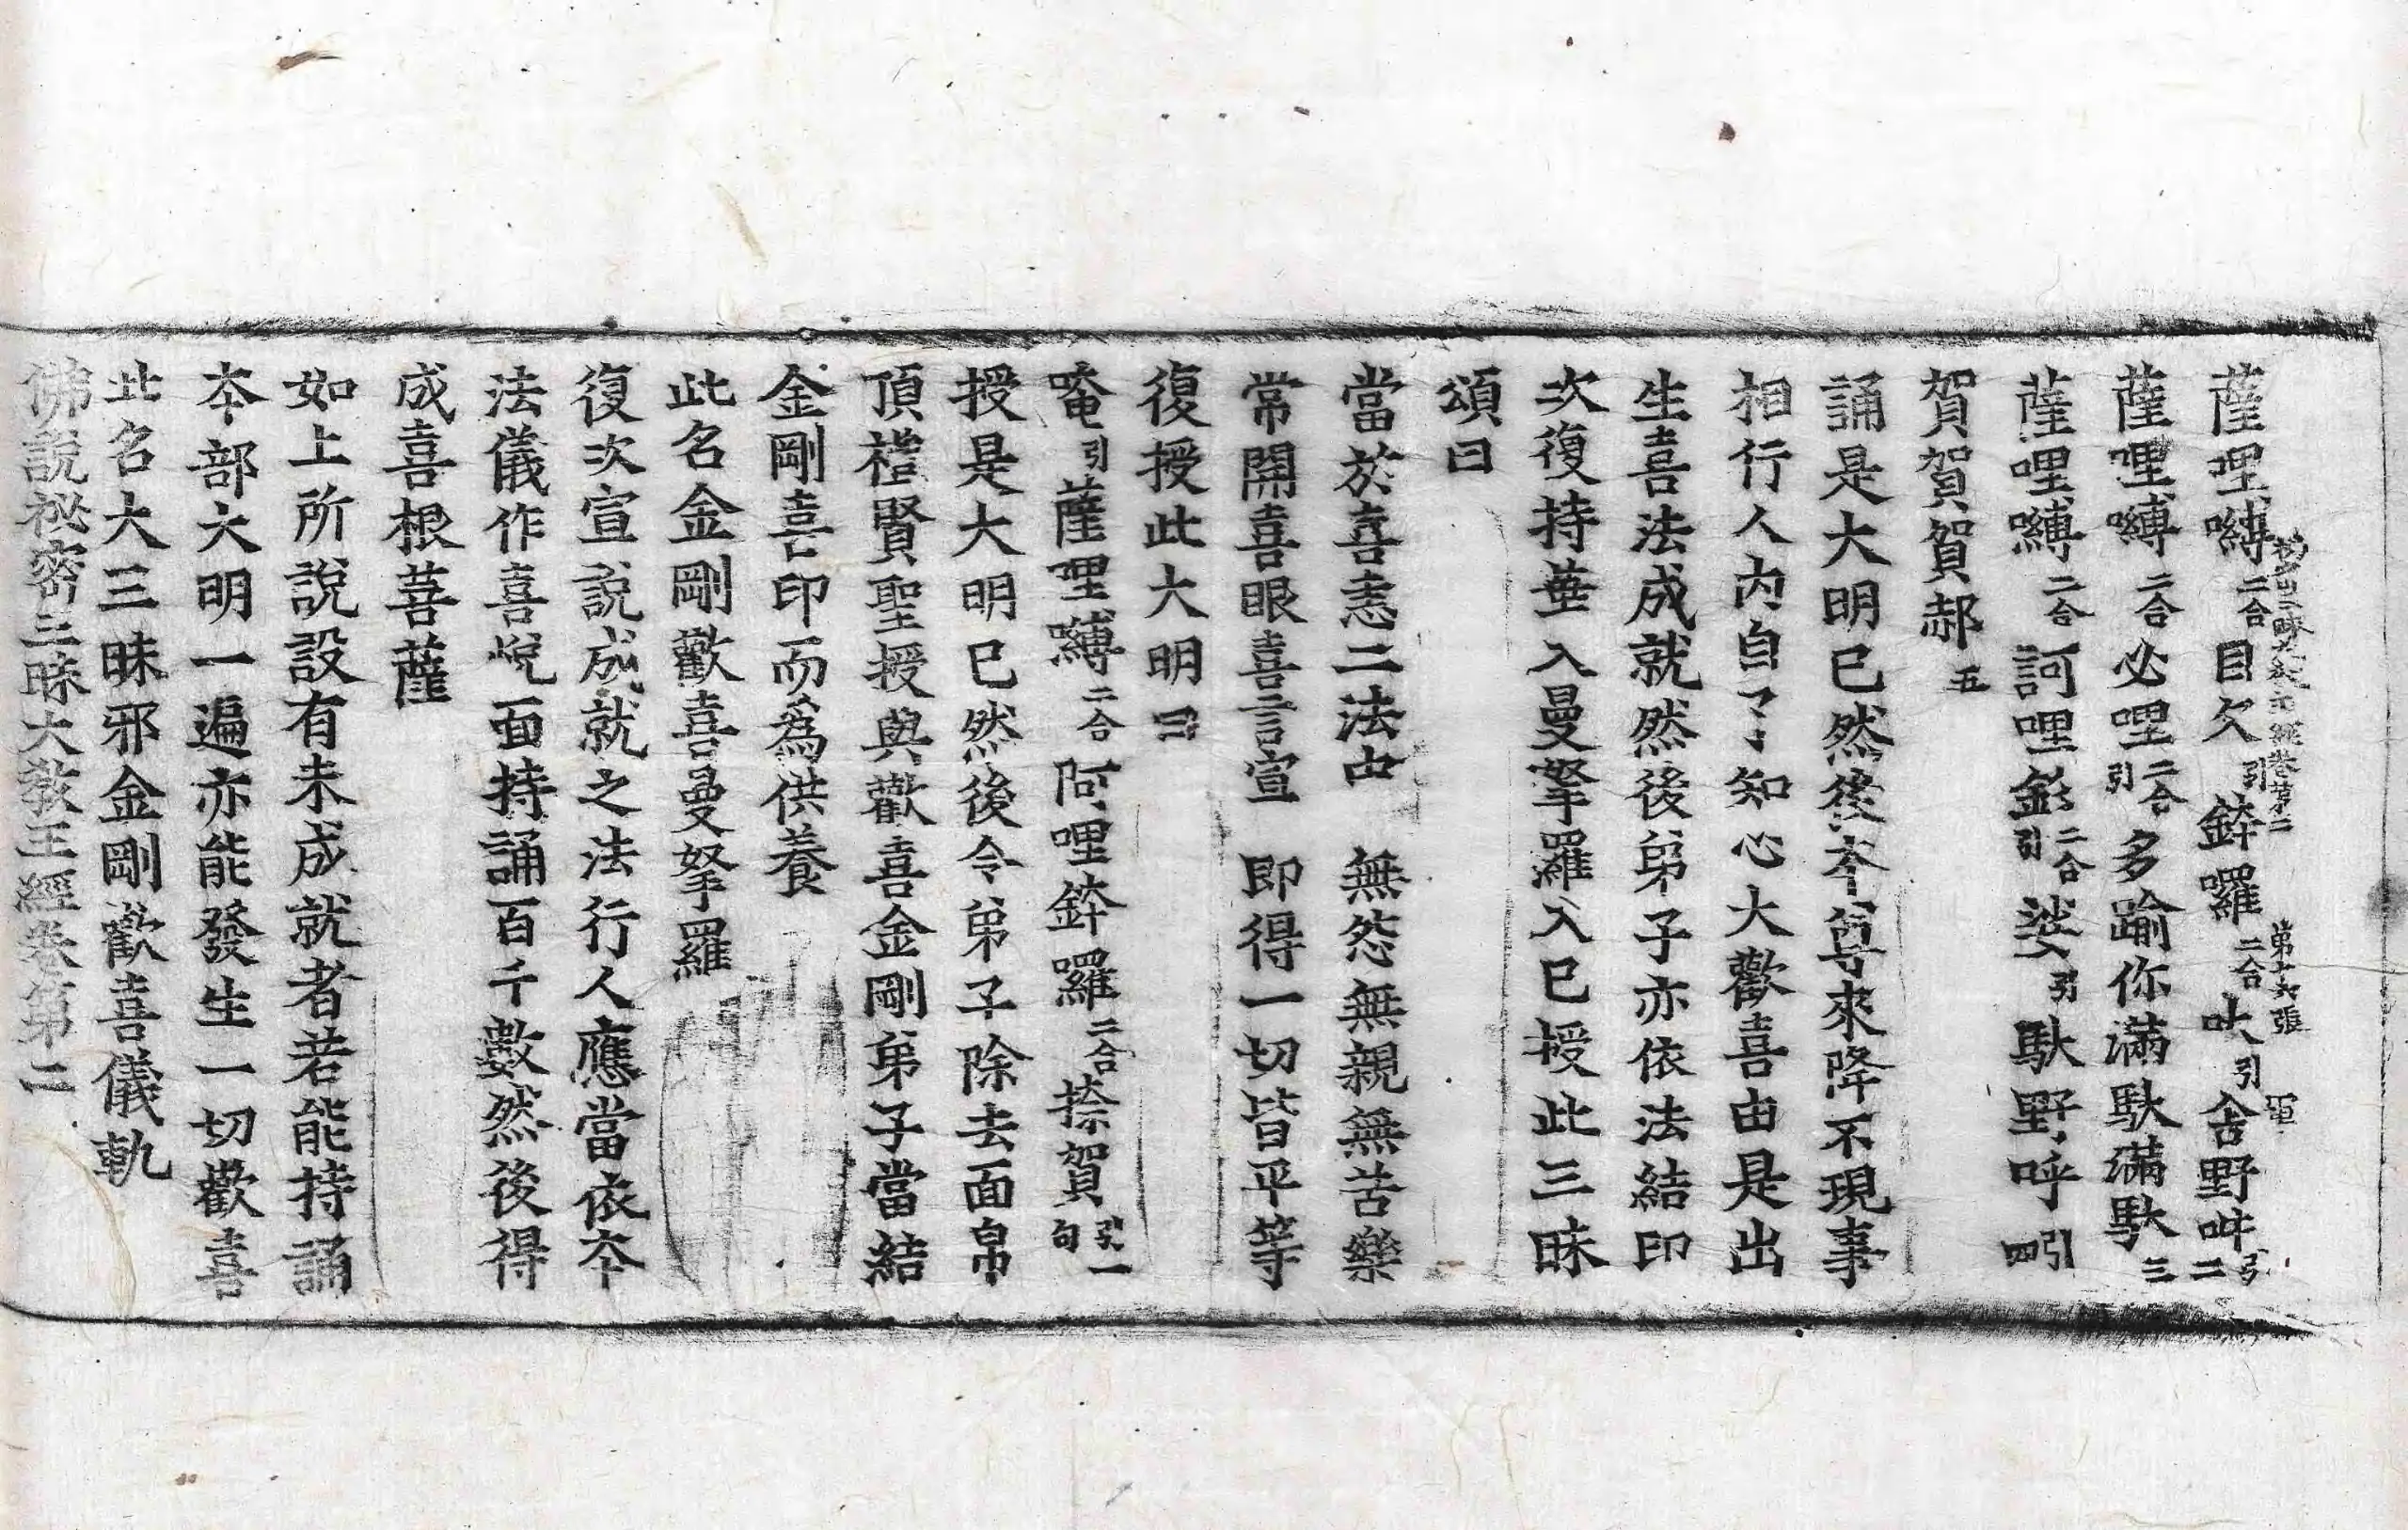 薩哩嚩二合目欠引鋅囉二合吠引舍野吽引二
薩哩嚩二合必哩二合引多踰你滿馱滿馱三
薩哩嚩二合訶哩彰二合引娑引馱野呼引四
賀賀賀郝五
誦是大明已然後夲尊來降不現事
相行人内自了知心大歡喜由是出
生喜法成就然後弟子亦依法結印
次復持華入曼拏羅入已授此三昧
頌曰
當於喜恚二法中　無怨無親無苦樂
常開喜眼喜言宣　即得一切皆平等
復授此大明曰
唵引薩哩嚩二合阿哩鋅囉二合捺賀引一句
授是大明已然後令弟子除去面帛
頂禮賢聖授與歡喜金剛弟子當結
金剛喜印而爲供養
此名金剛歡喜曼拏羅
復次宣說成就之法行人應當依夲
法儀作喜悅面持誦百千數然後得
成喜根菩薩
如上所說設有未成就者若能持誦
夲部大明一遍亦能發生一切歡喜
此名大三昧耶金剛歡喜儀軌
佛說祕密三昧大教王經卷第二